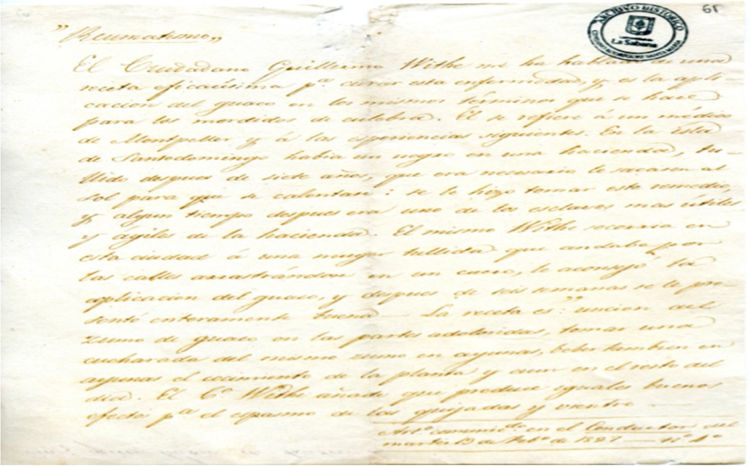 61
ARCHIVO HISTORICO
La Sabana
"Reumatismo"
El Ciudadano Guillermo Withe me ha hablado de una
receta eficacisima pª. curar esta enfermedad, y es la apli-
cacion del guaco en los mismos términos que se hace
para los mordidos de culebra. El se refiere á un médico
de Montpeller y á las esperiencias siguientes. En la Isla
de Santodomingo habia un negro en una hacienda, tu-
llido despues de siete años, que era necesario le sacasen al
sol para que se calentase: se le hizo tomar este remedio,
y algun tiempo despues era uno de los esclavos mas útiles
y ágiles de la hacienda. El mismo Withe socorria en
esta ciudad á una muger tullida que andaba por
las calles arrastrándose en un cuero, le aconsejó la
aplicacion del guaco, y despues de seis semanas se le pre-
sentó enteramente buena. La receta es: "uncion del
zumo de guaco en las partes adoloridas, tomar una
cucharada del mismo zumo en ayunas, beber tambien en
ayunas el cocimiento de la planta y aun en el resto del
dia. El Cº Withe añade que produce iguales buenos
efectos pª el espasmo de las quijadas y vientre.
Artº. comunicdo. en el Conductor del
martes 13 de Febº de 1827 — nº 4º